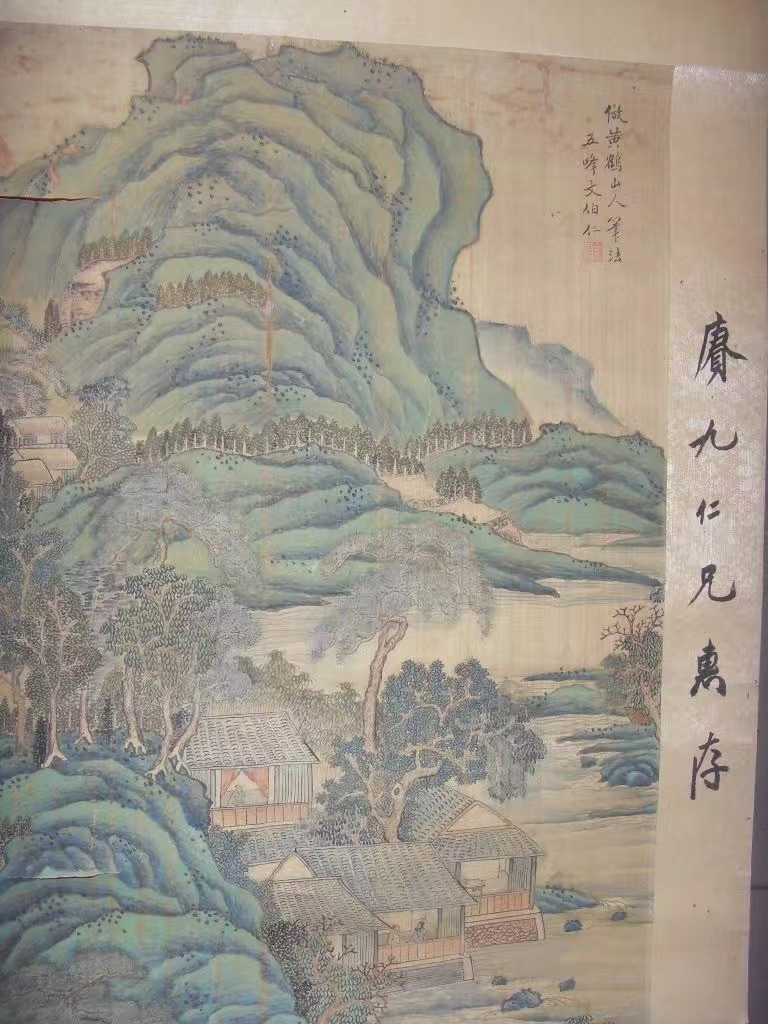 賡九仁兄惠存
倣黃鶴山人筆法
五峰文伯仁